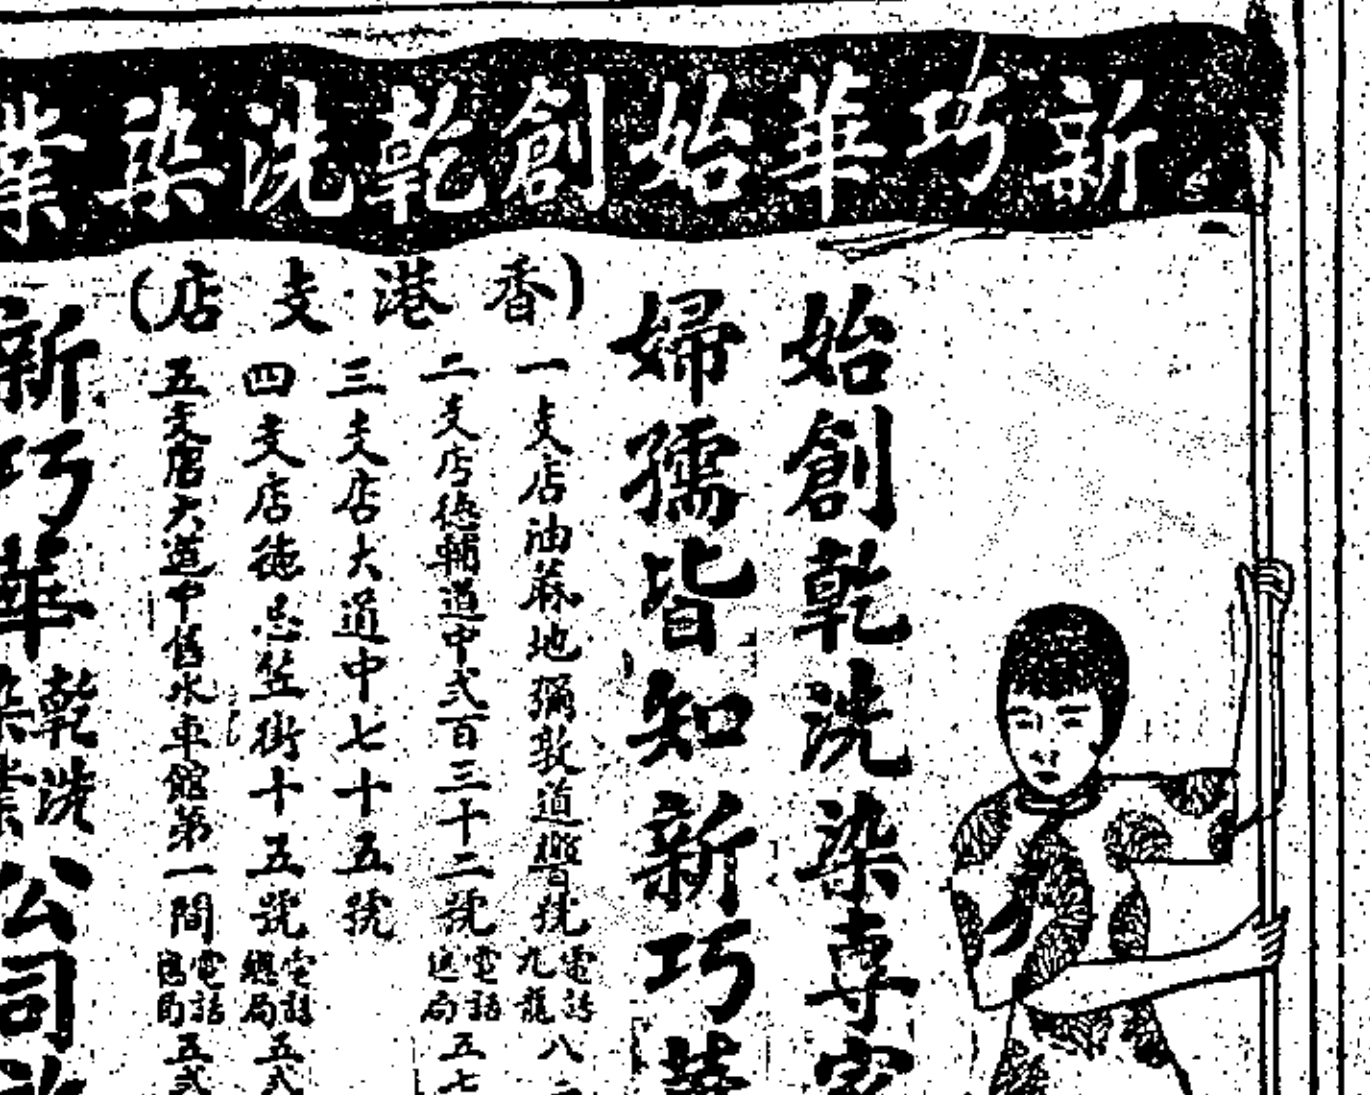 新巧華始創乾洗染業
始創乾洗染專家
婦孺皆知新巧華
(香港支店)
一支店油蔴地彌敦道 號電話九龍八
二支店德輔道中弍百三十二號電話 局五七
三支店大道中七十五號
四支店德忌笠街十五號電話總局五弍
五支店大道中舊水車館第一間電話 局五弍
新巧華乾洗染業公司